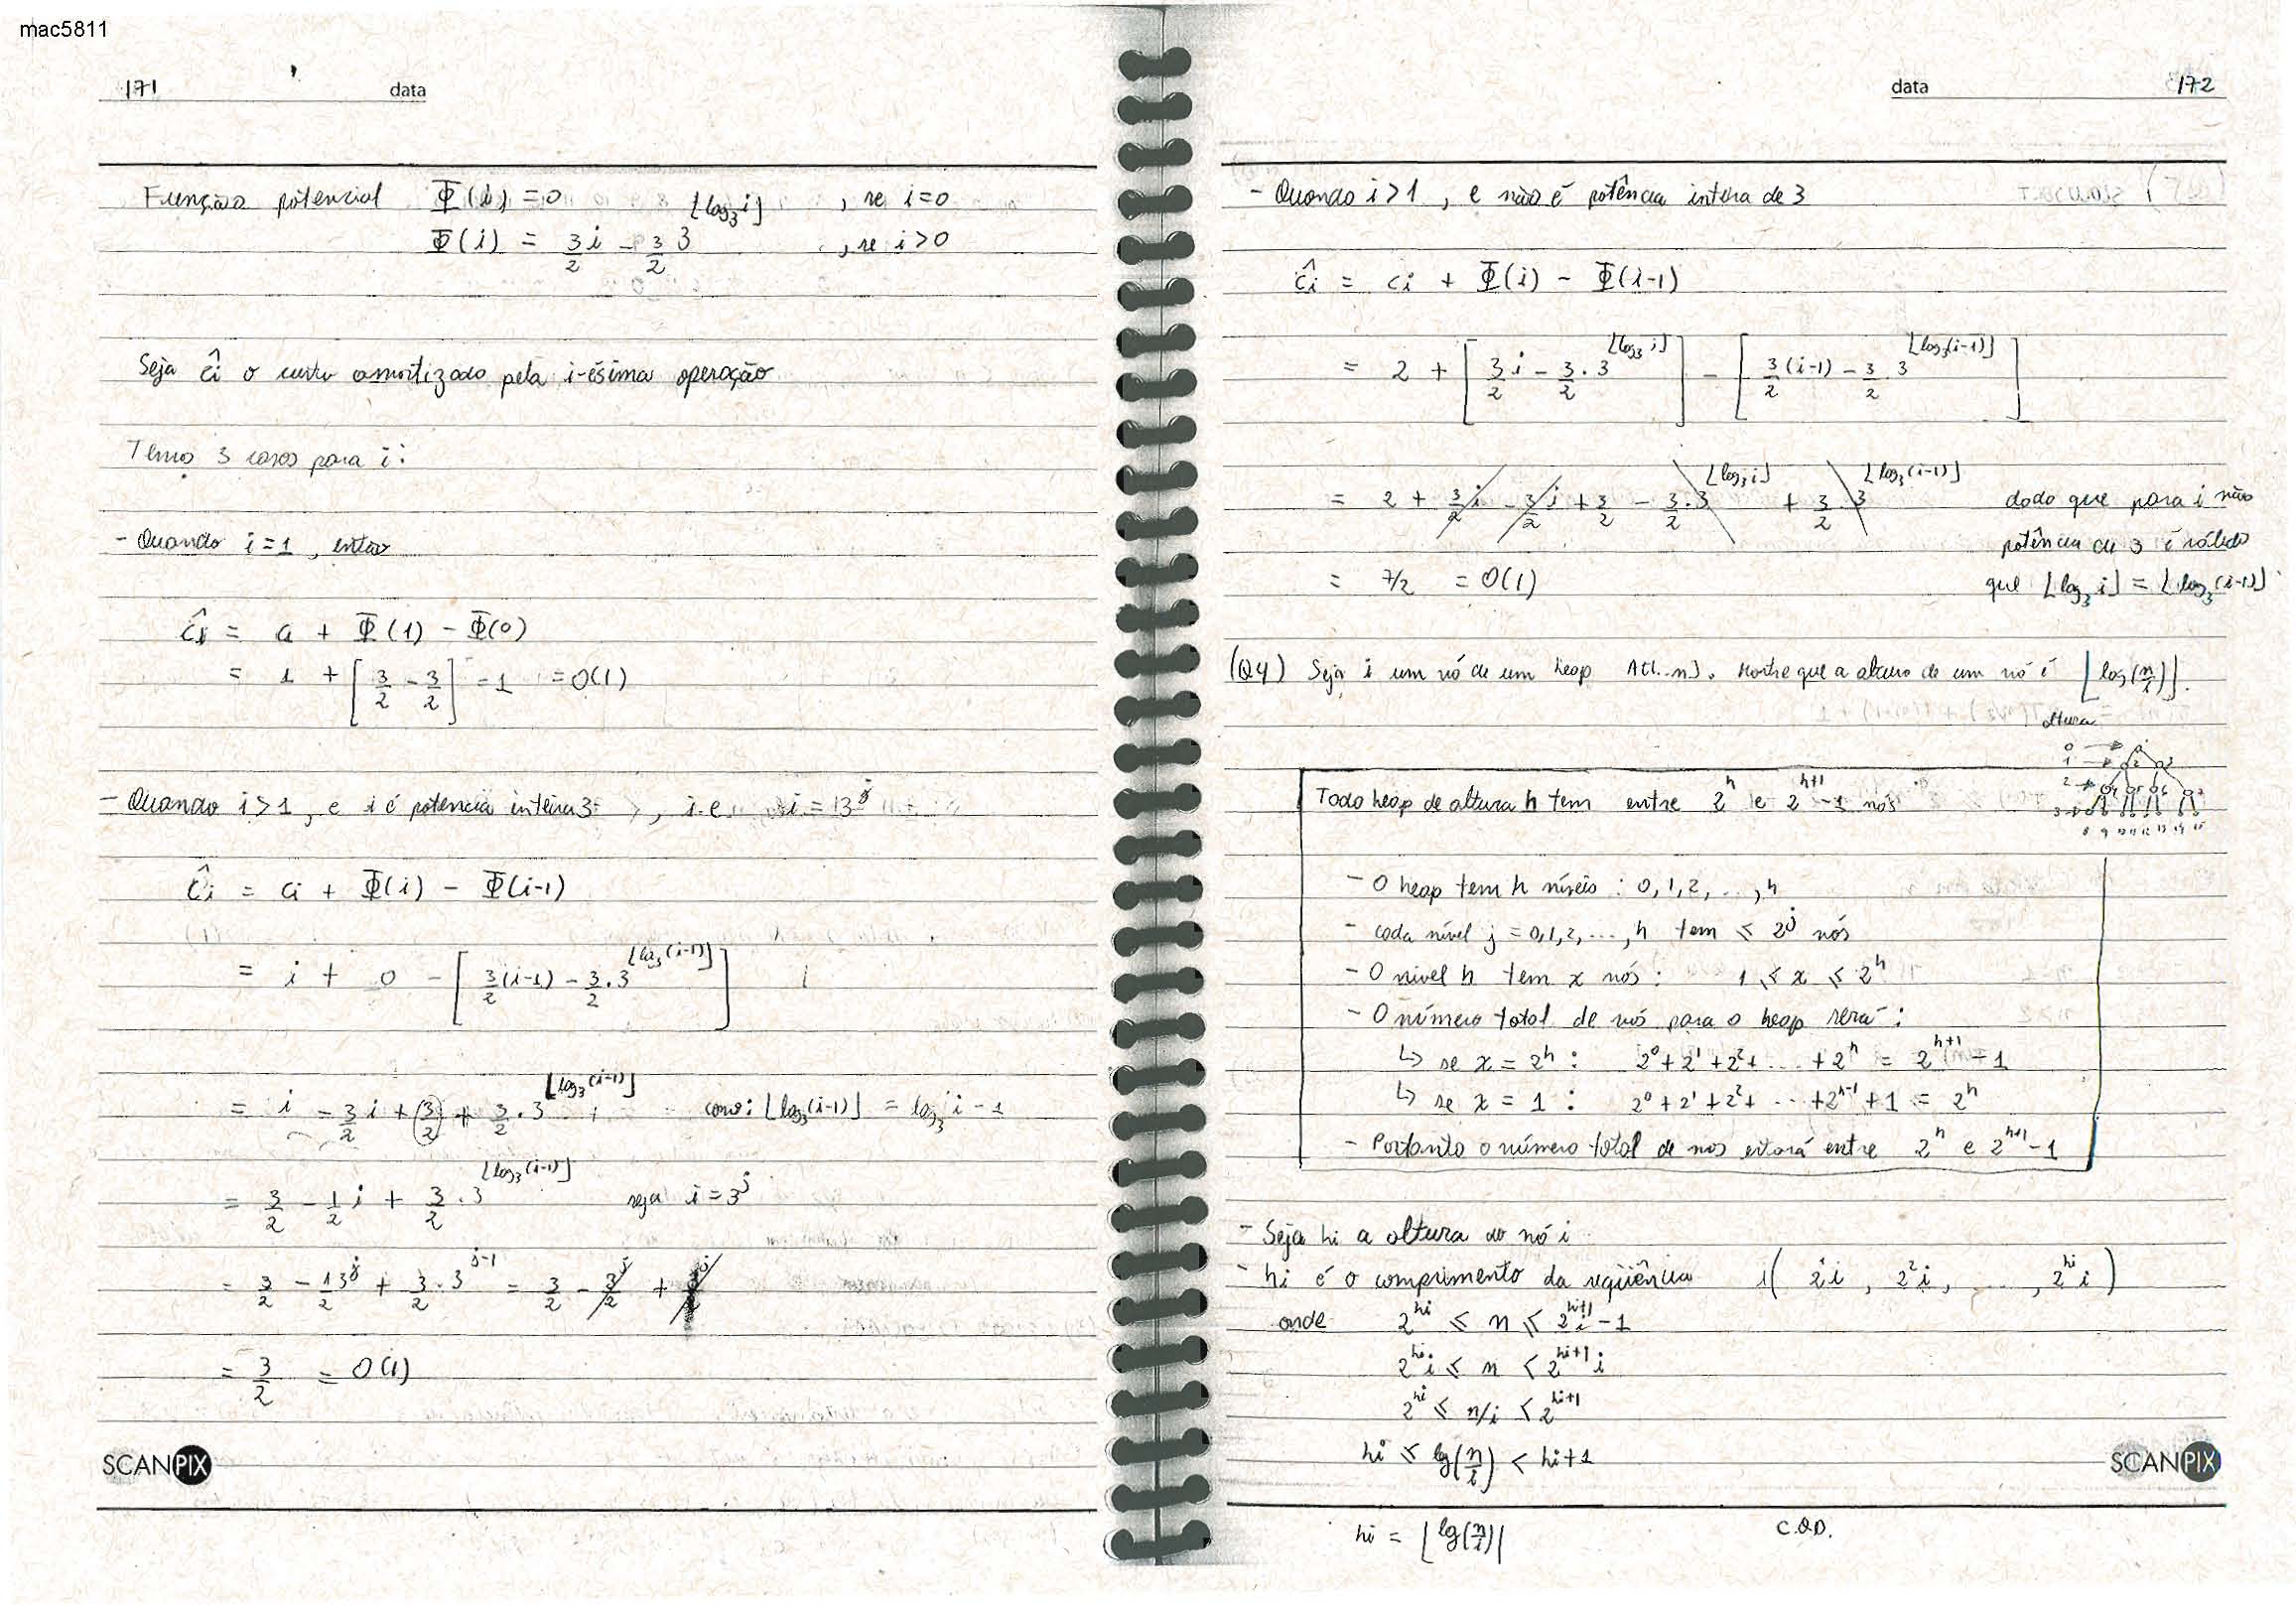 mac5811
171 data
Função potencial Φ(i) = 0 , se i=0
Φ(i) = 3/2 i - 3/2 3^⌊log₃i⌋ , se i>0
Seja ĉi o custo amortizado pela i-ésima operação
Temos 3 casos para i:
- Quando i=1, então
ĉi = ci + Φ(1) - Φ(0)
= 1 + [3/2 - 3/2] - 1 = O(1)
- Quando i>1, e i é potência inteira 3 , i.e. i = 13^j
ĉi = ci + Φ(i) - Φ(i-1)
= i + 0 - [3/2(i-1) - 3/2·3^⌊log₃(i-1)⌋]
= i - 3/2 i + 3/2 + 3/2·3^⌊log₃(i-1)⌋ como: ⌊log₃(i-1)⌋ = log₃i - 1
= 3/2 - 1/2 i + 3/2·3^⌊log₃(i-1)⌋ seja i=3^j
= 3/2 - 1/2 3^j + 3/2·3^j-1 = 3/2 - 3^j/2 + 3^j/2
= 3/2 = O(1)
SCANPIX
data 172
- Quando i>1, e não é potência inteira de 3
ĉi = ci + Φ(i) - Φ(i-1)
= 2 + [3/2 i - 3/2·3^⌊log₃i⌋] - [3/2(i-1) - 3/2·3^⌊log₃(i-1)⌋]
= 2 + 3/2 i - 3/2 i + 3/2 - 3/2·3^⌊log₃i⌋ + 3/2·3^⌊log₃(i-1)⌋ dado que para i não
potência de 3 é válido
= 7/2 = O(1) que ⌊log₃i⌋ = ⌊log₃(i-1)⌋
(Q4) Seja i um nó de um heap A[1..n]. Mostre que a altura de um nó é ⌊log(n/i)⌋.
altura
0
1 2 3
2 4 5 6 7
3 8 9 10 11 12 13 14 15
Todo heap de altura h tem entre 2^h e 2^h+1 - 1 nós
- O heap tem h níveis: 0,1,2,...,h
- cada nível j = 0,1,2,...,h tem ≤ 2^j nós
- O nível h tem x nós: 1 ≤ x ≤ 2^h
- O número total de nós para o heap será:
↳ se x = 2^h: 2^0+2^1+2^2+...+2^h = 2^h+1 - 1
↳ se x = 1: 2^0+2^1+2^2+...+2^h-1+1 = 2^h
- Portanto o número total de nós estará entre 2^h e 2^h+1 - 1
- Seja hi a altura do nó i
- hi é o comprimento da seqüência (2i, 2²i, ..., 2^hi i)
onde 2^hi ≤ n ≤ 2^hi+1 i - 1
2^hi i ≤ n < 2^hi+1 i
2^hi ≤ n/i < 2^hi+1
hi ≤ lg(n/i) < hi+1
SCANPIX
hi = ⌊lg(n/i)⌋ C.Q.D.